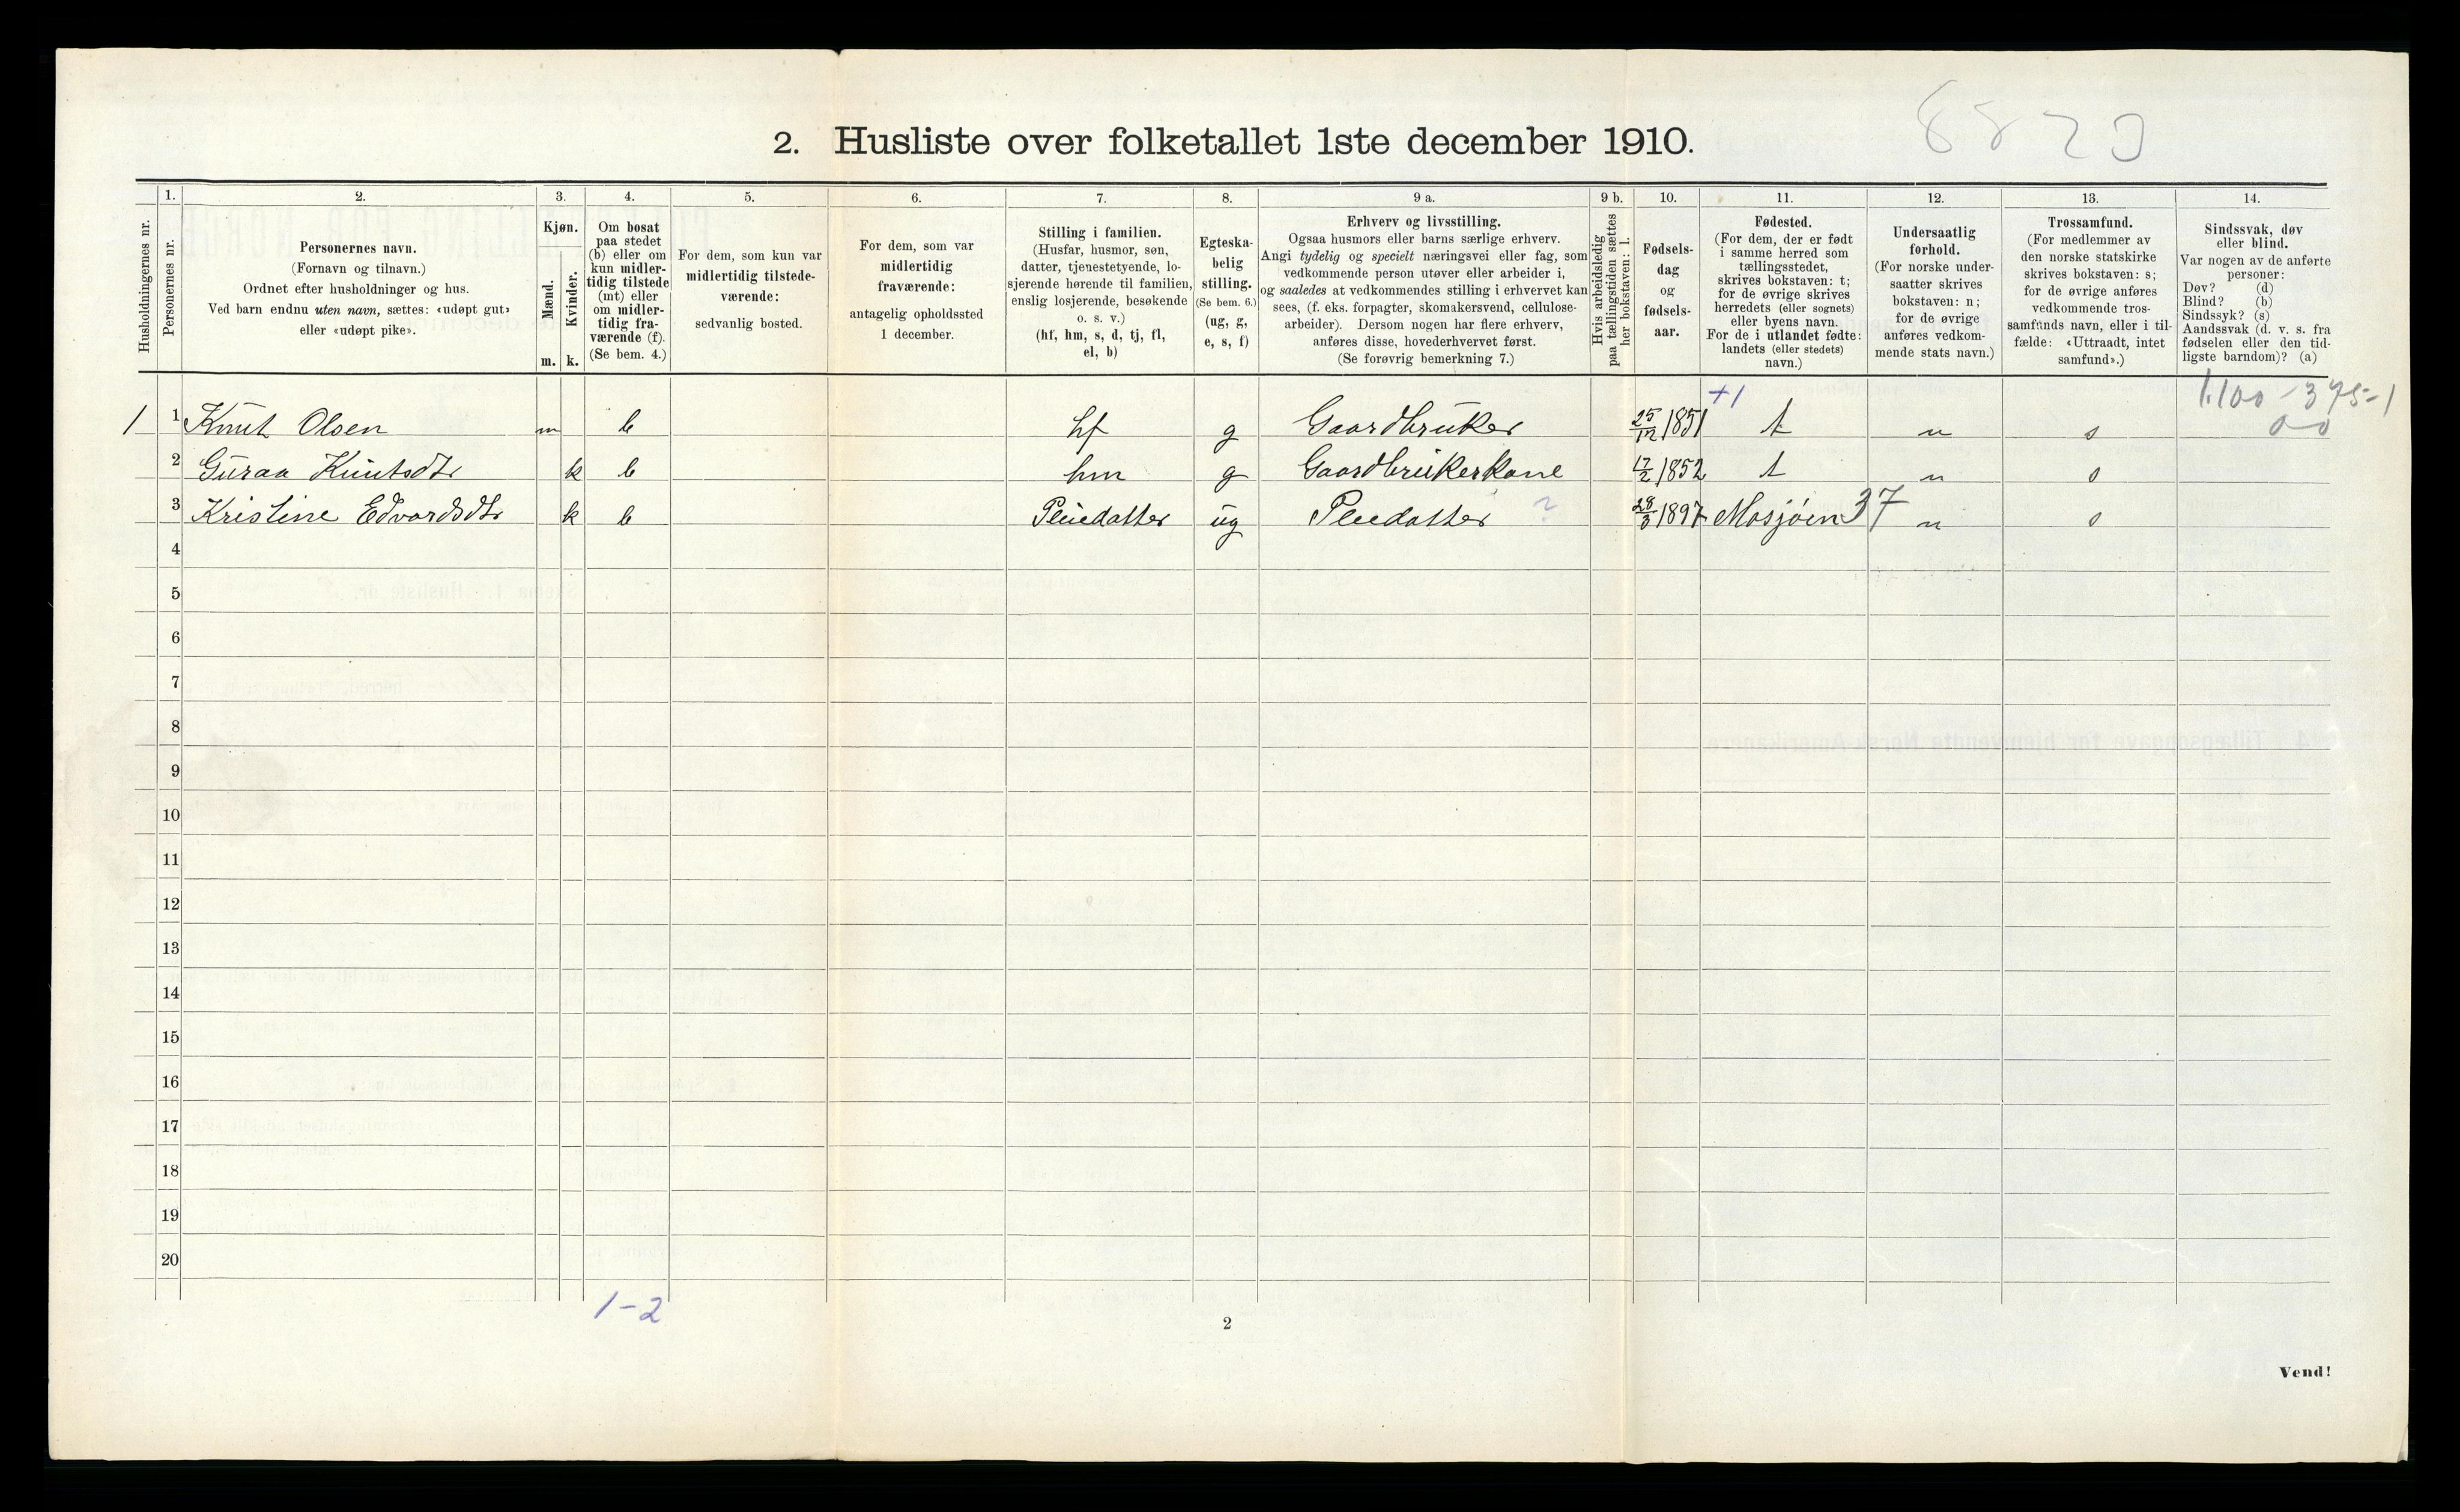 8820
2. Husliste over folketallet 1ste december 1910.
Husholdningernes nr.
1.
Personernes nr.
2.
Personernes navn.
(Fornavn og tilnavn.)
Ordnet efter husholdninger og hus.
Ved barn endnu uten navn, sættes: «udøpt gut»
eller «udøpt pike».
3.
Kjøn.
Mænd.
m.
Kvinder.
k.
4.
Om bosat
paa stedet
(b) eller om
kun midler-
tidig tilstede
(mt) eller
om midler-
tidig fra-
værende (f).
(Se bem. 4.)
5.
For dem, som kun var
midlertidig tilstede-
værende:
sedvanlig bosted.
6.
For dem, som var
midlertidig
fraværende:
antagelig opholdssted
1 december.
7.
Stilling i familien.
(Husfar, husmor, søn,
datter, tjenestetyende, lo-
sjerende hørende til familien,
enslig losjerende, besøkende
o. s. v.)
(hf, hm, s, d, tj, fl,
el, b)
8.
Egteska-
belig
stilling.
(Se bem. 6.)
(ug, g,
e, s, f)
9 a.
Erhverv og livsstilling.
Ogsaa husmors eller barns særlige erhverv.
Angi tydelig og specielt næringsvei eller fag, som
vedkommende person utøver eller arbeider i,
og saaledes at vedkommendes stilling i erhvervet kan
sees, (f. eks. forpagter, skomakersvend, cellulose-
arbeider). Dersom nogen har flere erhverv,
anføres disse, hovederhvervet først.
(Se forøvrig bemerkning 7.)
9 b.
Hvis arbeidsledig
paa tællingstiden sættes
her bokstaven: l.
10.
Fødsels-
dag
og
fødsels-
aar.
11.
Fødested.
(For dem, der er født
i samme herred som
tællingsstedet,
skrives bokstaven: t;
for de øvrige skrives
herredets (eller sognets)
eller byens navn.
For de i utlandet fødte:
landets (eller stedets)
navn.)
12.
Undersaatlig
forhold.
(For norske under-
saatter skrives
bokstaven: n;
for de øvrige
anføres vedkom-
mende stats navn.)
13.
Trossamfund.
(For medlemmer av
den norske statskirke
skrives bokstaven: s;
for de øvrige anføres
vedkommende tros-
samfunds navn, eller i til-
fælde: «Uttraadt, intet
samfund».)
14.
Sindssvak, døv
eller blind.
Var nogen av de anførte
personer:
Døv? (d)
Blind? (b)
Sindssyk? (s)
Aandssvak (d. v. s. fra
fødselen eller den tid-
ligste barndom)? (a)
+1
1.100-375-1
0-0
1 1 Knut Olsen m b hf g Gaardbruker 25/12 1851 t n s
2 Guraa Knutsdtr k b hm g Gaardbrukerkone 17/2 1852 t n s
3 Kristine Edvardsdtr k b Pleiedatter ug Pleiedatter ? 28/3 1897 Mosjøen 37 n s
4
5
6
7
8
9
10
11
12
13
14
15
16
17
18
19
20
1-2
2
Vend!